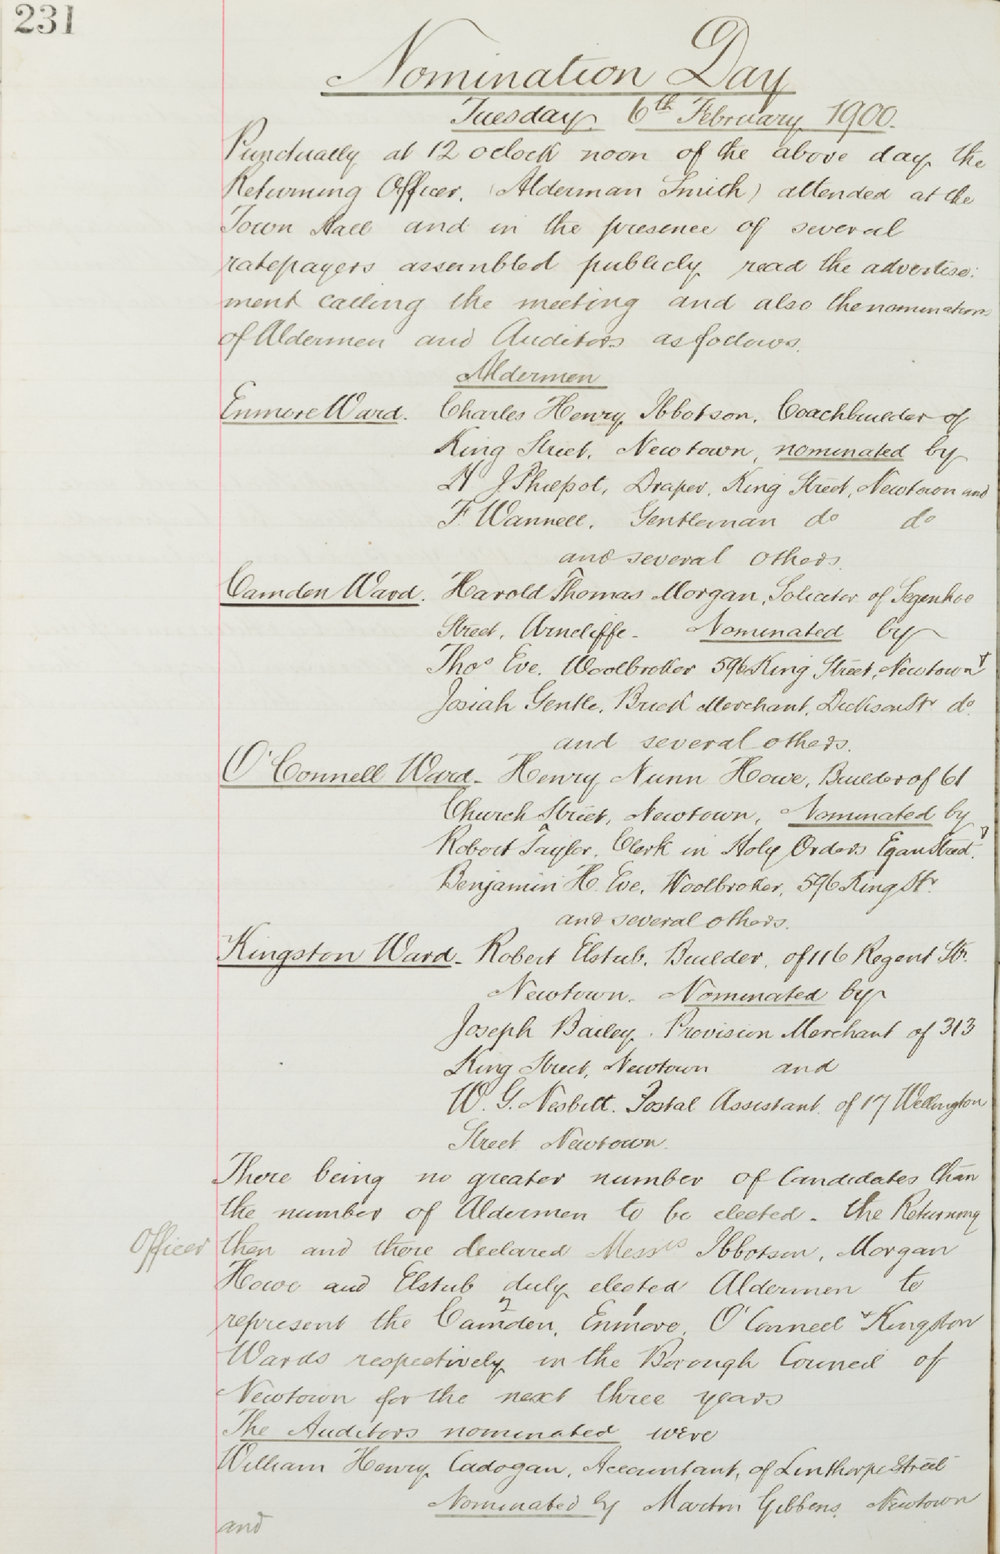 231
Nomination Day
Tuesday 6th February 1900.
Punctually at 12 oclock noon of the above day the
Returning Officer. (Alderman Smith) attended at the
Town Hall and in the presence of several
ratepayers assembled publicly read the advertise:
ment calling the meeting and also the nominations
of Aldermen and Auditors as follows.
Aldermen
Enmore Ward. Charles Henry Ibbotson. Coachbuilder of
King Street, Newtown, nominated by
J Draper, King Street, Newtown and
F Wannell. Gentleman do do
and several others.
Camden Ward. Harold Thomas Morgan, Solicitor of Segenhoe
Street, Arncliffe. Nominated by
Thos Eve. Woolbroker 596 King Street, Newtown &
Josiah Gentle, Brick Merchant, Dickson Str do
and several others.
O'Connell Ward. Henry Nunn Howe, Builder of 61
Church Street, Newtown, Nominated by
Robert Taylor. Clerk in Holy Orders Egan Street &
Benjamin H. Eve. Woolbroker, 596 King Str
and several others.
Kingston Ward. Robert Elstub. Builder, of 116 Regent Str.
Newtown. Nominated by
Joseph Bailey. Provision Merchant of 313
King Street, Newtown and
W. G. Nesbitt. Postal Assistant. of 17 Wellington
Street Newtown.
There being no greater number of Candidates than
the number of Aldermen to be elected. the Returning
Officer then and there declared Messrs Ibbotson, Morgan
Howe and Elstub duly elected Aldermen to
2 1
represent the Camden, Enmore, O'Connell & Kingston
Wards respectively in the Borough Council of
Newtown for the next three years
The Auditors nominated were
William Henry Cadogan, Accountant, of Linthorpe Street
Nominated by Martin Gibbons, Newtown
and